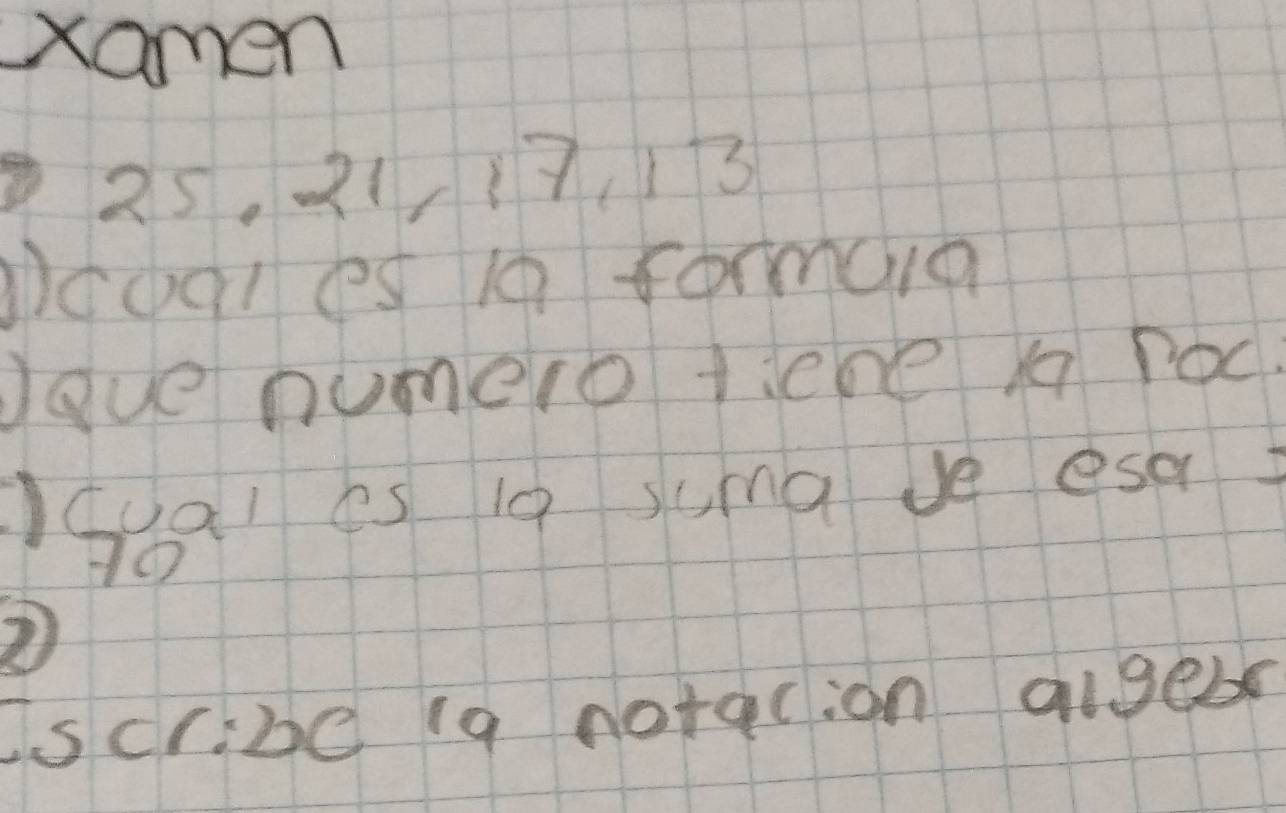 xamen
25, 21, 17, 13
) cual es la formula
) que numero tiene la poc
) cual es la suma de esa
70
2)
Escribe la notacion algebr